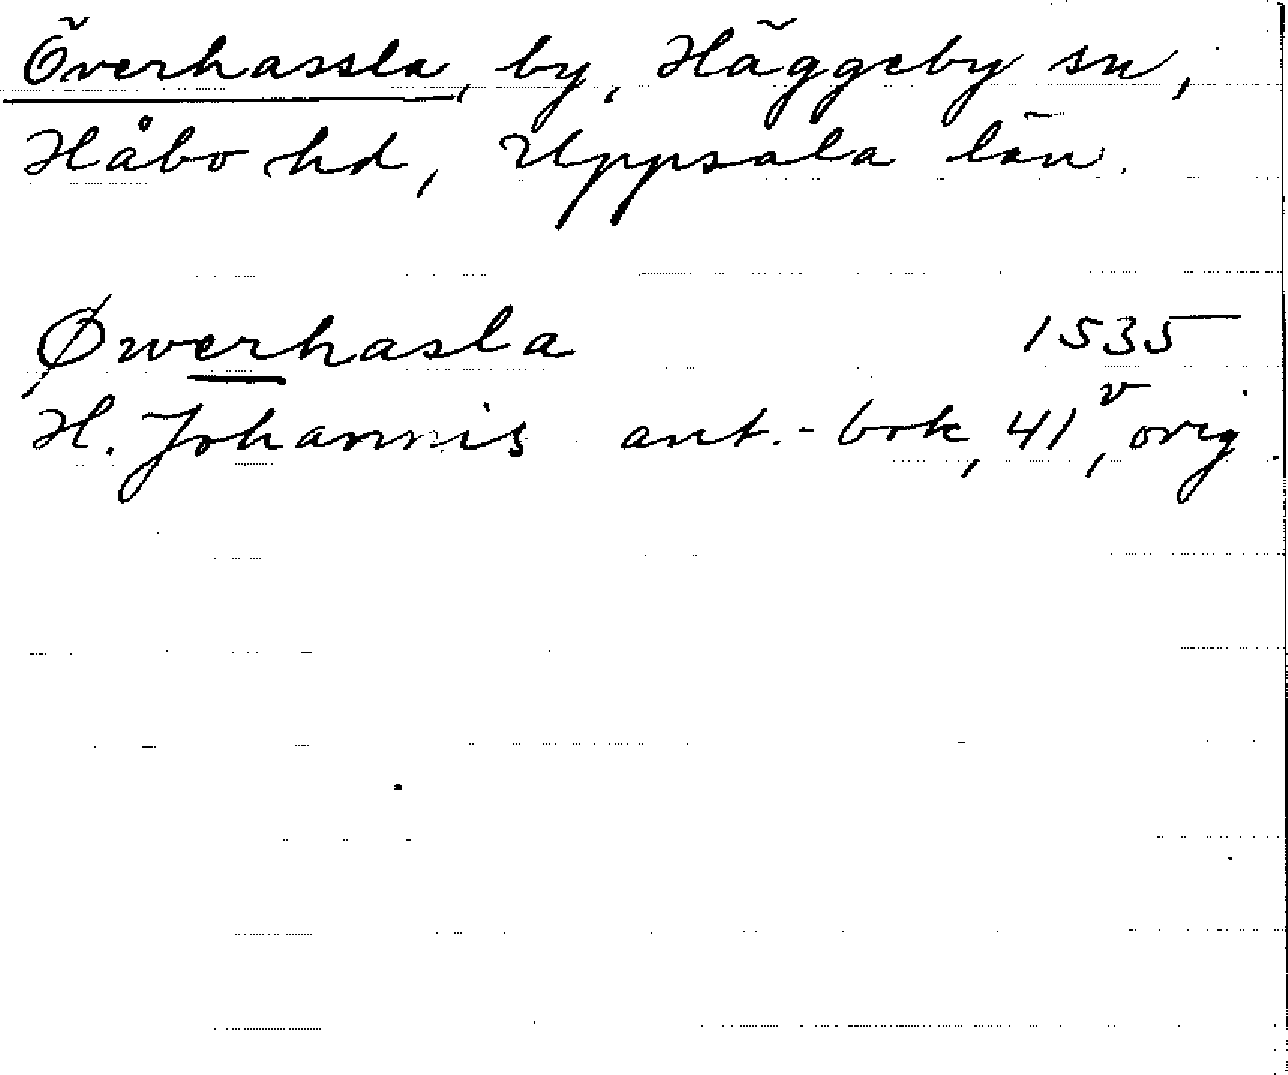 Överhassla, by, Häggeby sn,
Håbo hd, Uppsala län.
Øwerhasla 1535
H. Johannis ant.-bok, 41v, orig.